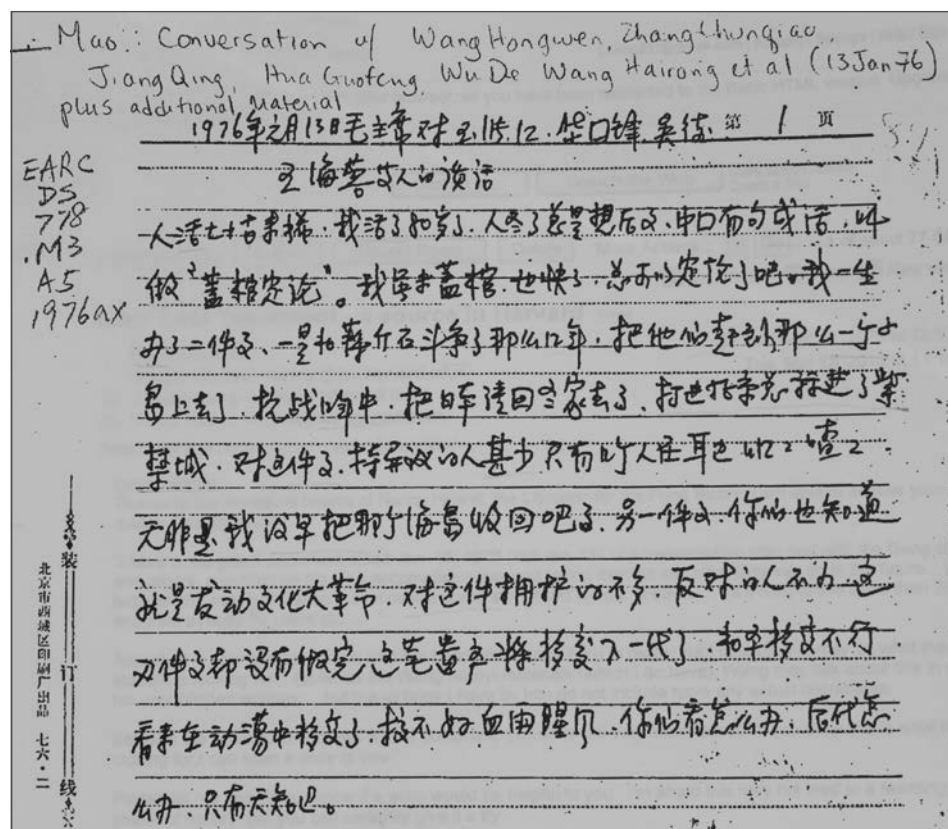 Mao: Conversation w/ Wang Hongwen, Zhang Chunqiao
Jiang Qing, Hua Guofeng, Wu De Wang Hairong et al (13 Jan 76)
plus additional material
1976年元月13日毛主席对王洪文、华国锋、吴德 第 1 页
王海蓉 人的谈话
EARC
DS
778
.M3
A5
1976ax
人活七十古来稀,我活了八十岁了,人老了总是想后事,中国有句成话,叫
做“盖棺定论”。我虽未盖棺,也快了,总可以定论了吧。我一生
办了二件事,一是和蒋介石斗争了那么几十年,把他们赶到那么一个小
岛上去了,抗战八年中,把日军请回老家去了,打进北京总算进了紫
禁城,对这件事,持异议的人甚少只有几个人在耳边叽叽喳喳
无非是我没早把那个海岛收回吧了,另一件事,你们也知道
就是发动文化大革命,对这件拥护的不多,反对的人不少,这
两件事都没有做完,这笔遗产得移交下一代了,和平移交不行
看来在动荡中移交了,搞不好血雨腥风,你们看怎么办,后代怎
么办,只有天知吧。
装
订
线
北京市西城区印刷厂出品 七六·二